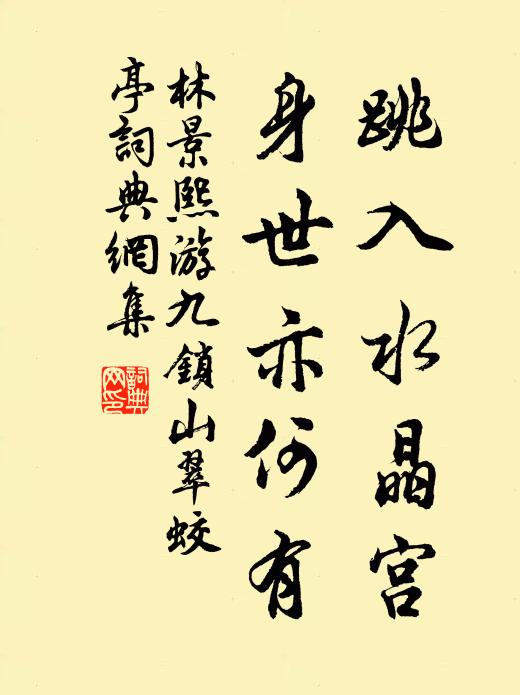 跳入水晶宫
身世亦何有
林景熙游九鎖山翠蛟
亭詞典網集
詞典
网印